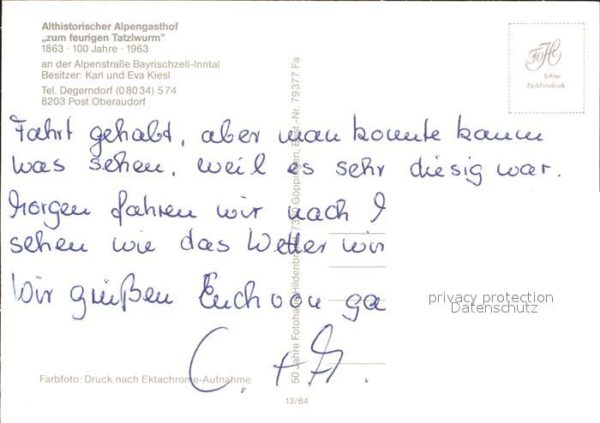 Althistorischer Alpengasthof
„zum feurigen Tatzlwurm"
1863 · 100 Jahre · 1963
an der Alpenstraße Bayrischzell-Inntal
Besitzer: Karl und Eva Kiesl
Tel. Degerndorf (08034) 574
8203 Post Oberaudorf
FoHi
Echter
Farbfotodruck
Fahrt gehabt, aber man konnte kaum
was sehen, weil es sehr diesig war.
Morgen fahren wir nach
sehen wie das Wetter wir
Wir grüßen Euch von ga
C. + H.
50 Jahre Fotohaus Hildenbrand, Göppingen, Best.-Nr. 79377 Fa
privacy protection
Datenschutz
Farbfoto: Druck nach Ektachrome-Aufnahme
13/84